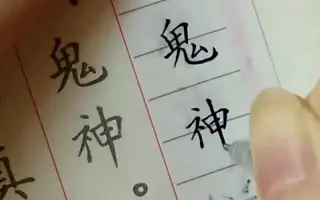 鬼神
鬼神。
真